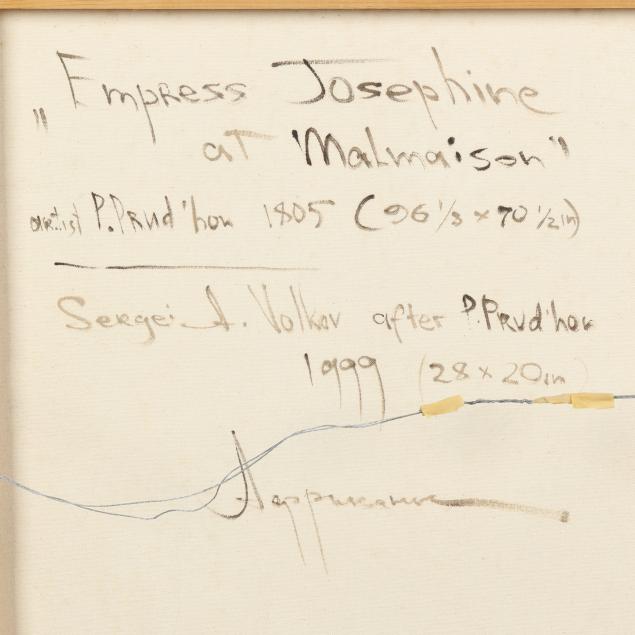 „Empress Josephine
at 'Malmaison"
artist P.Prud'hon 1805 (96 1/8 x 70 1/2 in)
Sergei A. Volkov after P.Prud'hon
1999 (28 x 20 in)